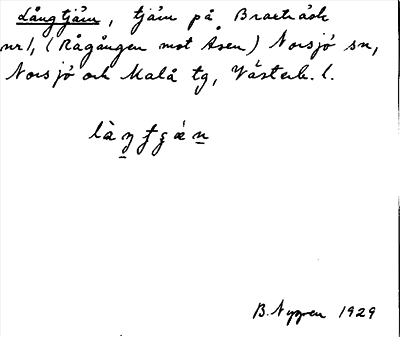 Långtjärn, tjärn på Braxträsk
nr 1, (Rågången mot Åsen) Norsjö sn,
Norsjö och Malå tg, Västerb. l.
B. Nygren 1929